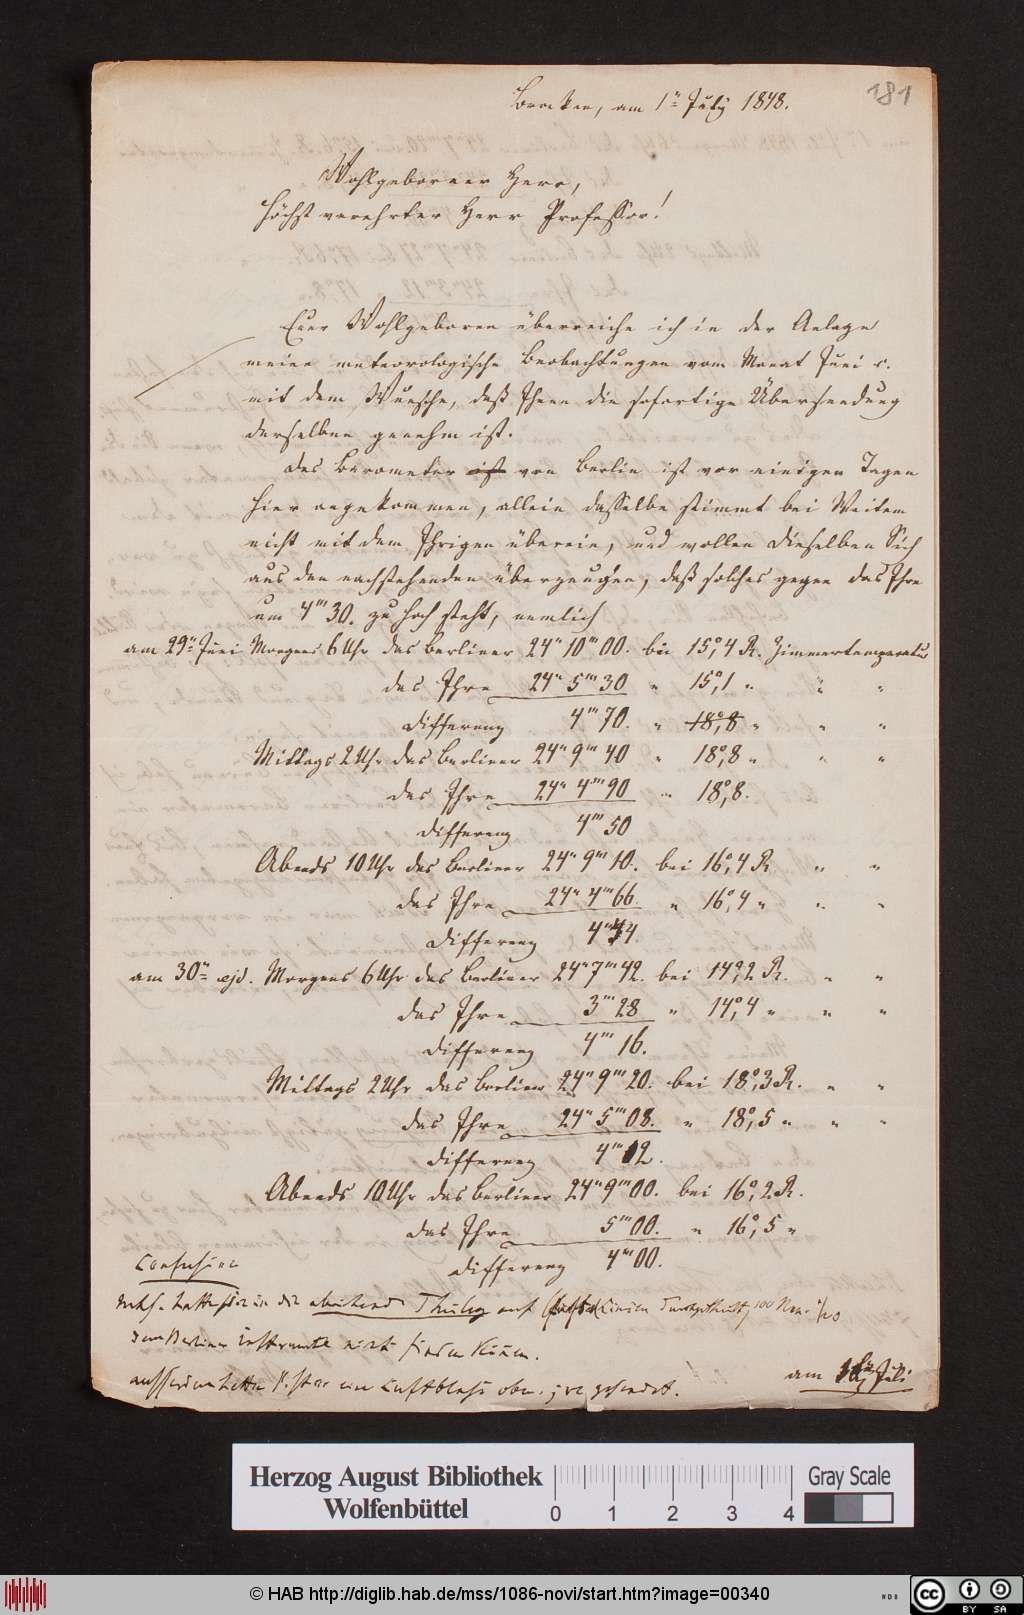 Brocken, am 1n July 1848.
181
Wohlgeborner Herr,
Höchst verehrter Herr Professor!
Euer Wohlgeboren überreiche ich in der Anlage
meine meteorologische Beobachtungen vom Monat Juni c.
mit dem Wunsche, daß Ihnen die sofortige Übersendung
derselben genehm ist.
Das Barometer ist von Berlin ist vor einigen Tagen
hier angekommen, allein dasselbe stimmt bei Weitem
nicht mit dem Ihrigen überein, und wollen Dieselben Sich
aus den nachstehenden überzeugen, daß solches gegen das Ihre
um 4''' 30. zu hoch steht, nemlich
am 29n Juni Morgens 6 Uhr das Berliner 24'' 10''' 00. bei 15°,4 R. Zimmertemperatur
das Ihre 24'' 5''' 30 " 15°,1 " " "
Differenz 4''' 70. " 18°,8 " " "
Mittags 2 Uhr das Berliner 24'' 9''' 40 " 18°,8 " " "
das Ihre 24'' 4''' 90 " 18°,8.
Differenz 4''' 50
Abends 10 Uhr das Berliner 24'' 9''' 10. bei 16°,4 R " "
das Ihre 24'' 4''' 66. " 16°,4 " " "
Differenz 4''' 44.
am 30n ejd. Morgens 6 Uhr das Berliner 24'' 7''' 42. bei 14°,2 R. " "
das Ihre 3''' 28 " 14°,4 " " "
Differenz 4''' 16.
Mittags 2 Uhr das Berliner 24'' 9''' 20. bei 18°,3 R. " "
das Ihre 24'' 5''' 08. " 18°,5 " " "
Differenz 4''' 12.
Abends 10 Uhr das Berliner 24'' 9''' 00. bei 16°,2 R.
das Ihre 5''' 00. " 16°,5 "
Differenz 4''' 00.
in die auf
dem Berliner nicht finden können.
ausserdem hatte ein Luftblase oben
am Juli
Herzog August Bibliothek
Wolfenbüttel
0 1 2 3 4
Gray Scale
© HAB http://diglib.hab.de/mss/1086-novi/start.htm?image=00340
WDB
CC BY SA